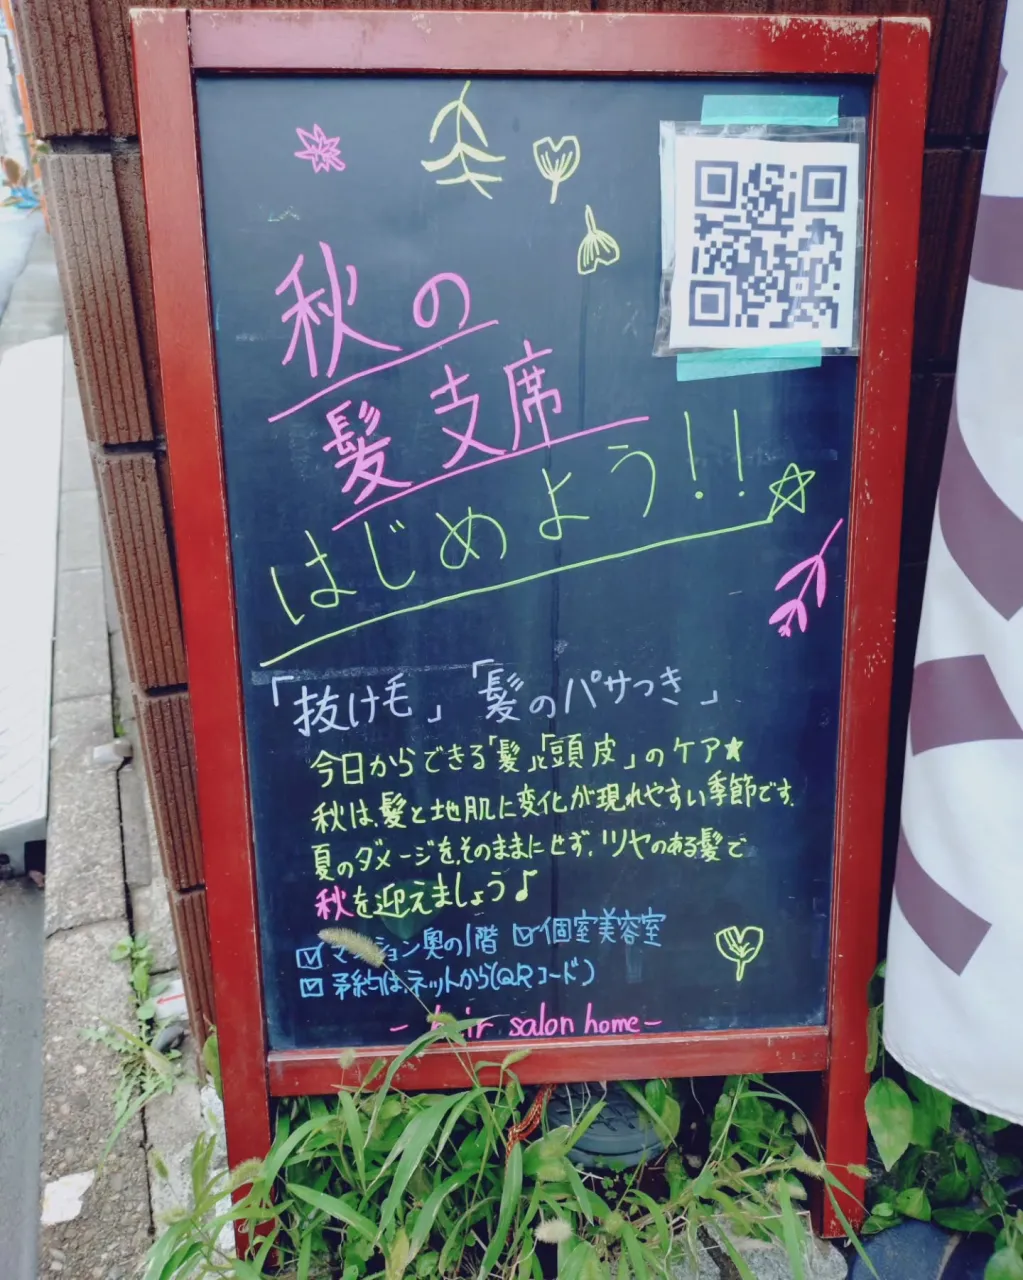 秋の
髪支席
はじめよう!!☆
「抜け毛」「髪のパサつき」
今日からできる「髪」と「頭皮」のケア★
秋は、髪と地肌に変化が現れやすい季節です。
夏のダメージを、そのままにせず、ツヤのある髪で
秋を迎えましょう♪
☑マンション奥の1階 ☑個室美容室
☑予約は、ネットから(QRコード)
- hair salon home -